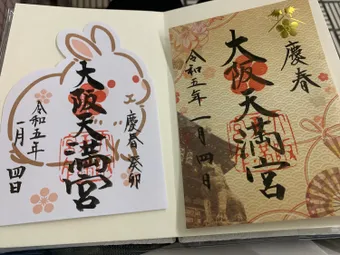 慶春
大阪天満宮
令和五年 一月四日
慶春 癸卯
大阪天満宮
令和五年
一月四日